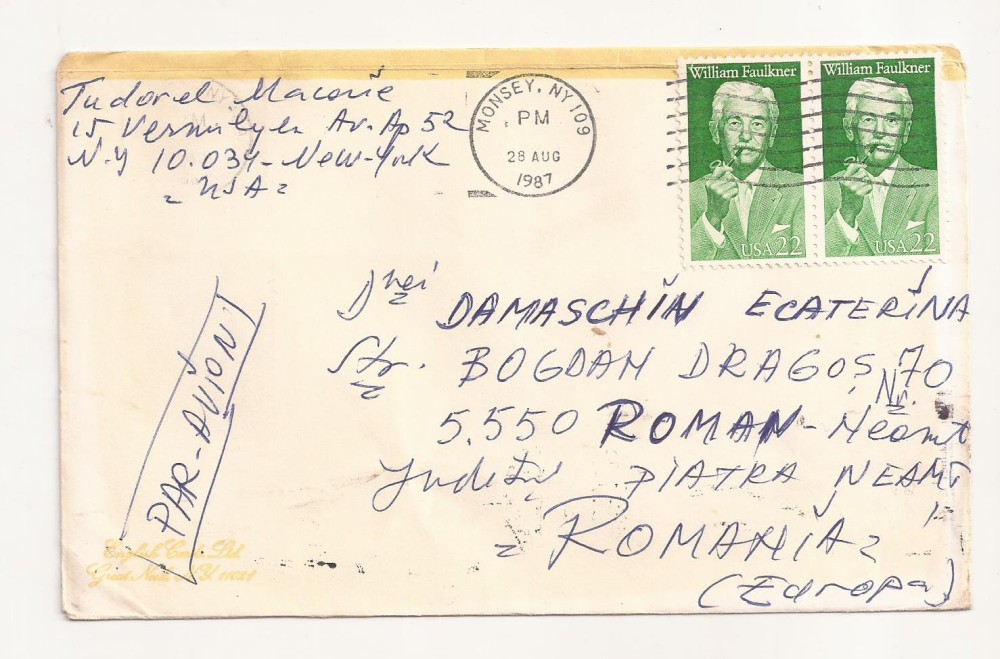 Tudorel Macovie
15 Vermilyea Av. Ap 52
N-Y 10.034-New-York
USA
MONSEY, NY 109
PM
28 AUG
1987
William Faulkner
USA 22
William Faulkner
USA 22
Dnei DAMASCHIN ECATERINA
Str. BOGDAN DRAGOȘ Nr. 70
5.550 ROMAN-Neamț
Județ PIATRA NEAMȚ
ROMANIA
(Europa)
PAR-AVION
Great Neck, N.Y. 11021